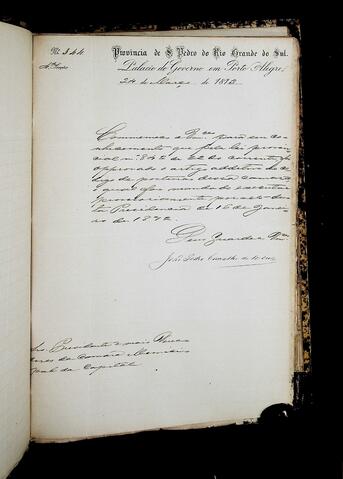 N. 344
Provincia de S. Pedro do Rio Grande do Sul.
Palacio do Governo em Porto Alegre,
24 de Março de 1872
Communico a Vmces para seu co-
nhecimento que pela lei provin-
cial nº 842 de 22 do corrente foi
approvado o artigo additivo do co-
digo de posturas dessa camara
o qual se mandou executar
provisoriamente por acto des-
ta Presidencia de 16 de Janei-
ro de 1872.
Deus Guarde a Vmces
João Pedro Carvalho de Moraes
Snrs. Presidente e mais Verea-
dores da Camara Munici-
pal da Capital